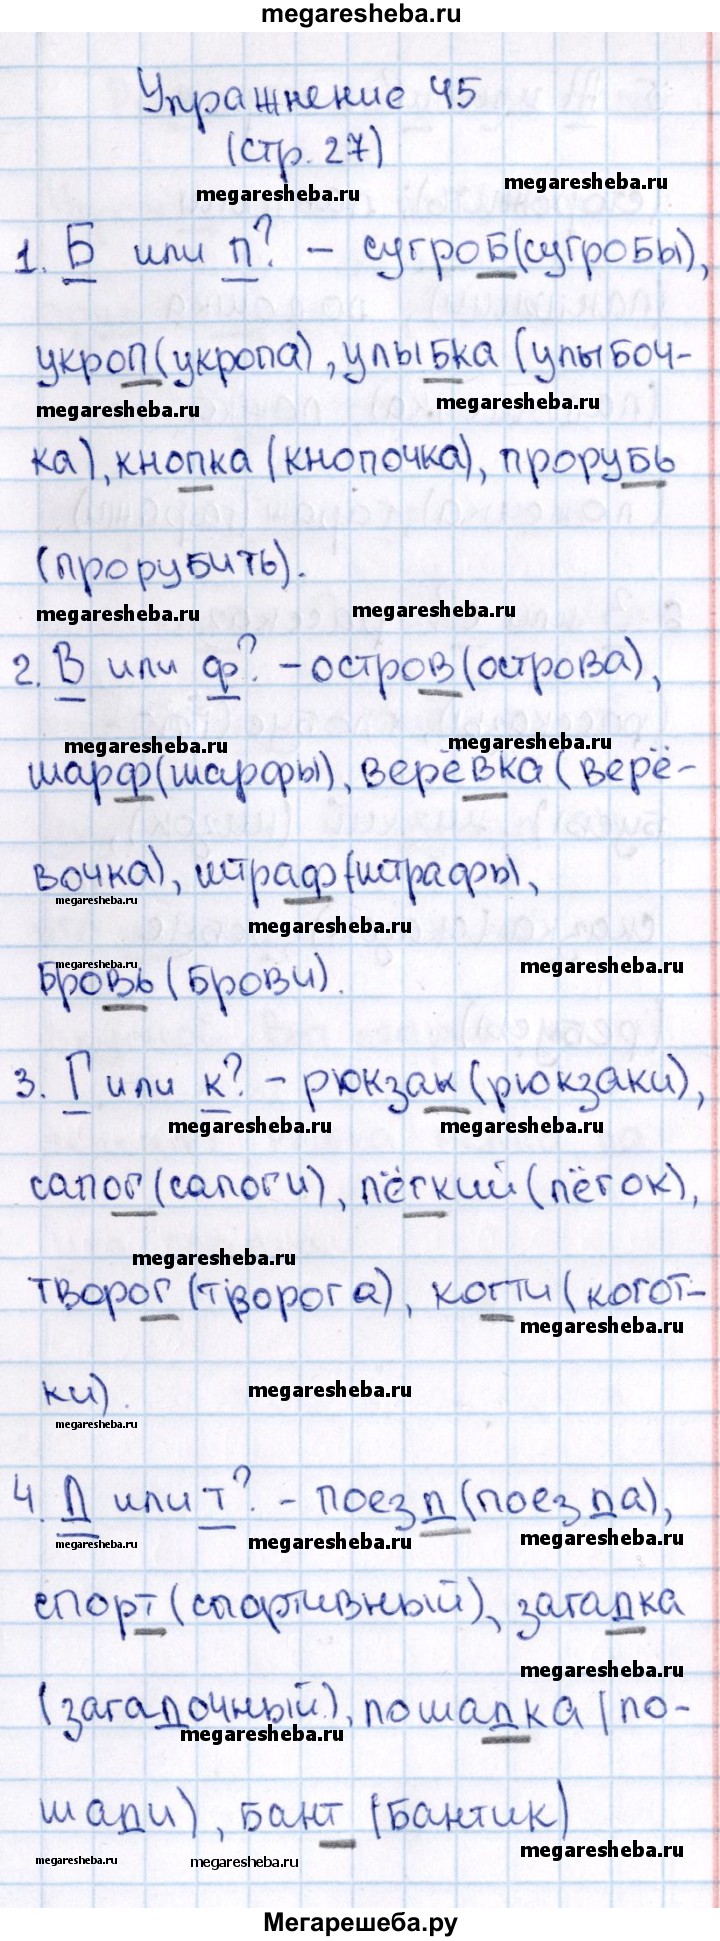 megaresheba.ru
Упражнение 45
(стр. 27)
megaresheba.ru megaresheba.ru
1. Б или п? - сугроб(сугробы),
укроп(укропа), улыбка (улыбоч-
megaresheba.ru megaresheba.ru
ка), кнопка (кнопочка), прорубь
(прорубить).
megaresheba.ru megaresheba.ru
2. В или ф? - остров(острова),
megaresheba.ru megaresheba.ru
шарф(шарфы), верёвка (верё-
вочка), штраф(штрафы),
megaresheba.ru megaresheba.ru
бровь (брови).
megaresheba.ru megaresheba.ru
3. Г или к? - рюкзак (рюкзаки),
megaresheba.ru megaresheba.ru
сапог (сапоги), лёгкий (лёгок),
megaresheba.ru
творог (творога), когти (когот-
megaresheba.ru
ки).
megaresheba.ru megaresheba.ru
4. Д или т? - поезд (поезда),
megaresheba.ru megaresheba.ru megaresheba.ru
спорт (спортивный), загадка
megaresheba.ru
(загадочный), лошадка (ло-
megaresheba.ru megaresheba.ru
шади), бант (бантик)
megaresheba.ru megaresheba.ru megaresheba.ru
Мегарешеба.ру